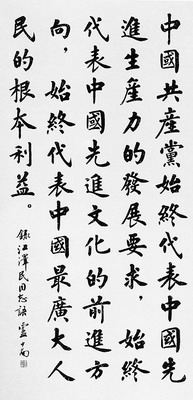 中國共產黨始終代表中國先
進生產力的發展要求，始終
代表中國先進文化的前進方
向，始終代表中國最廣大人
民的根本利益。
錄江澤民同志語